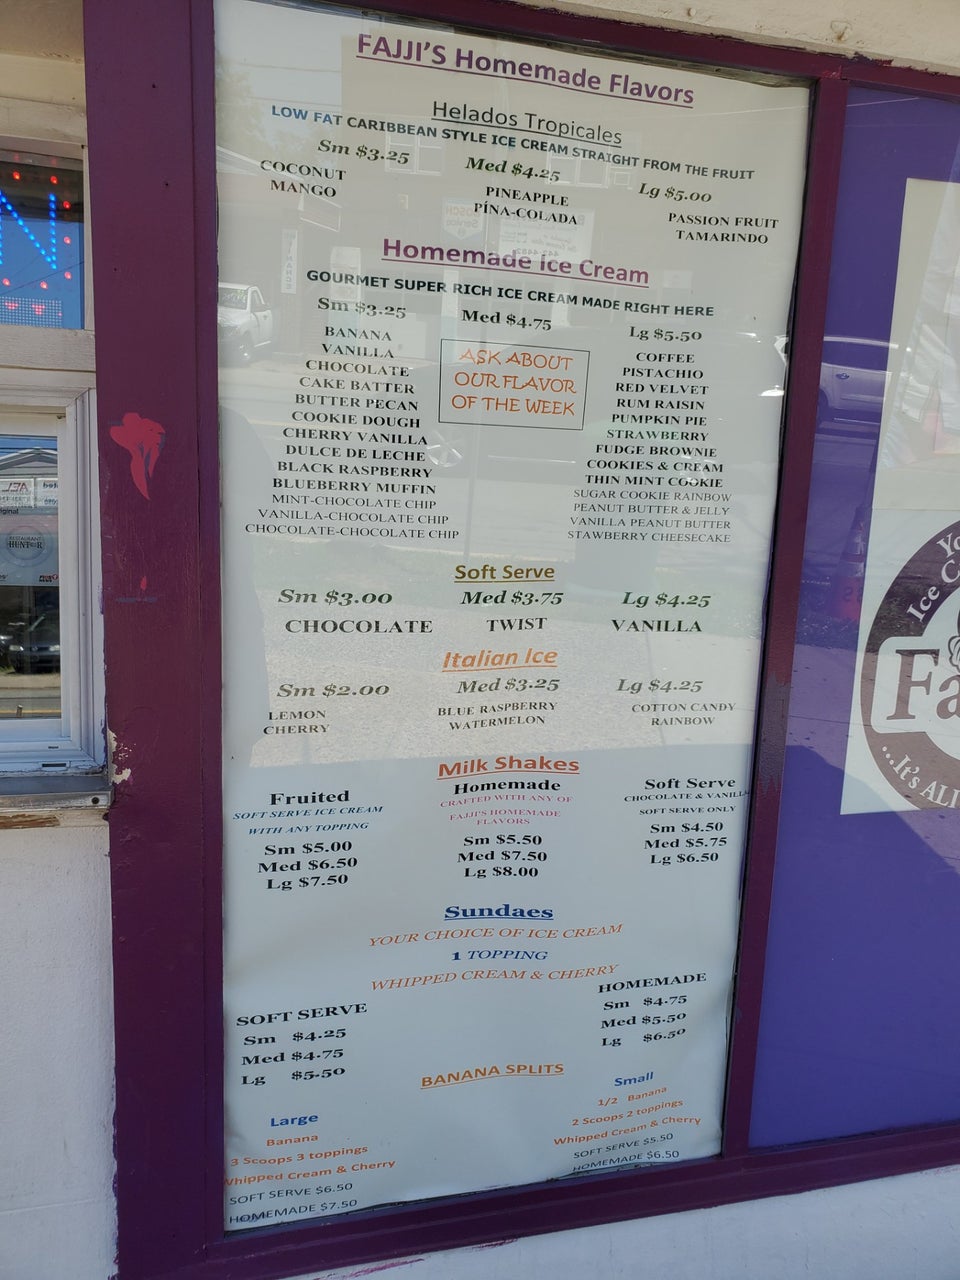 FAJJI'S Homemade Flavors
Helados Tropicales
LOW FAT CARIBBEAN STYLE ICE CREAM STRAIGHT FROM THE FRUIT
Sm $3.25 Med $4.25 Lg $5.00
COCONUT PINEAPPLE PASSION FRUIT
MANGO PÍNA-COLADA TAMARINDO
Homemade Ice Cream
GOURMET SUPER RICH ICE CREAM MADE RIGHT HERE
Sm $3.25 Med $4.75 Lg $5.50
BANANA
VANILLA
CHOCOLATE
CAKE BATTER
BUTTER PECAN
COOKIE DOUGH
CHERRY VANILLA
DULCE DE LECHE
BLACK RASPBERRY
BLUEBERRY MUFFIN
MINT-CHOCOLATE CHIP
VANILLA-CHOCOLATE CHIP
CHOCOLATE-CHOCOLATE CHIP
ASK ABOUT
OUR FLAVOR
OF THE WEEK
COFFEE
PISTACHIO
RED VELVET
RUM RAISIN
PUMPKIN PIE
STRAWBERRY
FUDGE BROWNIE
COOKIES & CREAM
THIN MINT COOKIE
SUGAR COOKIE RAINBOW
PEANUT BUTTER & JELLY
VANILLA PEANUT BUTTER
STAWBERRY CHEESECAKE
Soft Serve
Sm $3.00 Med $3.75 Lg $4.25
CHOCOLATE TWIST VANILLA
Italian Ice
Sm $2.00 Med $3.25 Lg $4.25
LEMON BLUE RASPBERRY COTTON CANDY
CHERRY WATERMELON RAINBOW
Milk Shakes
Fruited
SOFT SERVE ICE CREAM
WITH ANY TOPPING
Sm $5.00
Med $6.50
Lg $7.50
Homemade
CRAFTED WITH ANY OF
FAJJI'S HOMEMADE
FLAVORS
Sm $5.50
Med $7.50
Lg $8.00
Soft Serve
CHOCOLATE & VANILLA
SOFT SERVE ONLY
Sm $4.50
Med $5.75
Lg $6.50
Sundaes
YOUR CHOICE OF ICE CREAM
1 TOPPING
WHIPPED CREAM & CHERRY
SOFT SERVE
Sm $4.25
Med $4.75
Lg $5.50
HOMEMADE
Sm $4.75
Med $5.50
Lg $6.50
BANANA SPLITS
Large
Banana
3 Scoops 3 toppings
Whipped Cream & Cherry
SOFT SERVE $6.50
HOMEMADE $7.50
Small
1/2 Banana
2 Scoops 2 toppings
Whipped Cream & Cherry
SOFT SERVE $5.50
HOMEMADE $6.50
N
RESTAURANT
HUNTER
Yo
Ice C
Fa
...It's ALI